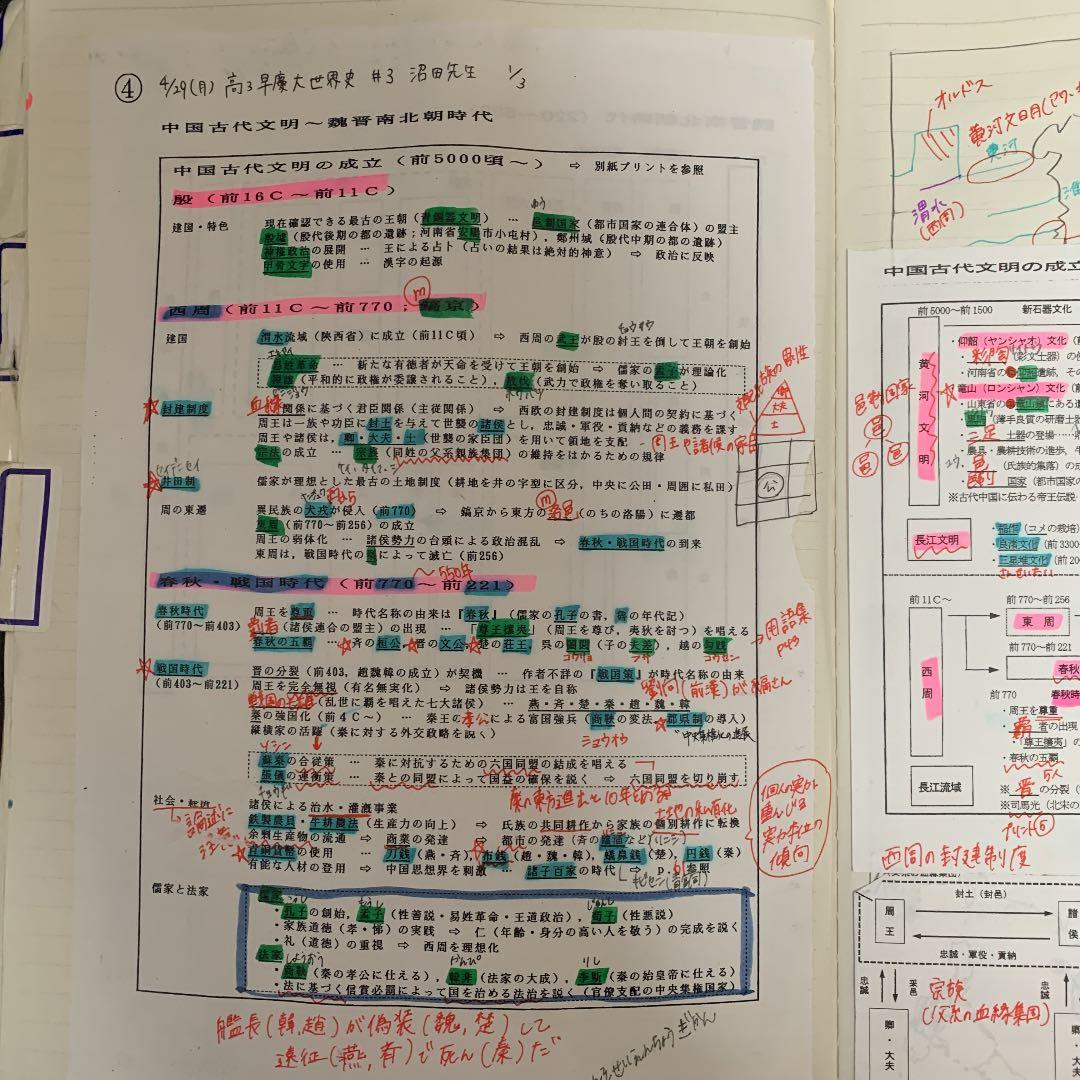 ④ 4/29(月) 高3早慶大世界史 #3 沼田先生 1/3
中国古代文明～魏晋南北朝時代
中国古代文明の成立（前5000頃～） ⇒ 別紙プリントを参照
殷（前16C～前11C）
ゆう
建国・特色 現在確認できる最古の王朝（青銅器文明） … 邑制国家（都市国家の連合体）の盟主
殷墟（殷代後期の都の遺跡；河南省安陽市小屯村），鄭州城（殷代中期の都の遺跡）
神権政治の展開 … 王による占卜（占いの結果は絶対的神意） ⇒ 政治に反映
甲骨文字の使用 … 漢字の起源
西周（前11C～前770；鎬京）
建国 渭水流域（陝西省）に成立（前11C頃） ⇒ 西周の武王が殷の紂王を倒して王朝を創始
易姓革命 … 新たな有徳者が天命を受けて王朝を創始 ⇒ 儒家の孟子が理論化
禅譲（平和的に政権が委譲されること），放伐（武力で政権を奪い取ること）
封建制度 血縁関係に基づく君臣関係（主従関係） ⇒ 西欧の封建制度は個人間の契約に基づく
周王は一族や功臣に封土を与えて世襲の諸侯とし，忠誠・軍役・貢納などの義務を課す
周王や諸侯は，卿・大夫・士（世襲の家臣団）を用いて領地を支配
宗法の成立 … 宗族（同姓の父系親族集団）の維持をはかるための規律
セイデンセイ
井田制 儒家が理想とした最古の土地制度（耕地を井の字型に区分，中央に公田・周囲に私田）
公
周の東遷 異民族の犬戎が侵入（前770） ⇒ 鎬京から東方の洛邑（のちの洛陽）に遷都
東周（前770～前256）の成立
周王の弱体化 … 諸侯勢力の台頭による政治混乱 ⇒ 春秋・戦国時代の到来
東周は，戦国時代の秦によって滅亡（前256）
～550年
春秋・戦国時代（前770～前221）
春秋時代 周王を尊重 … 時代名称の由来は『春秋』（儒家の孔子の書，魯の年代記）
（前770～前403） 覇者（諸侯の連合の盟主）の出現 … 「尊王攘夷」（周王を尊び，夷秋を討つ）を唱える
春秋の五覇 … 斉の桓公，晋の文公，楚の荘王，呉の闔閭（子の夫差），越の勾践
→用語集
戦国時代 晋の分裂（前403，趙魏韓の成立）が契機 … 作者不詳の『戦国策』が時代名称の由来
（前403～前221） 周王を完全無視（有名無実化） ⇒ 諸侯勢力は王を自称
戦国の七雄（乱世に覇を唱えた七大諸侯） … 燕・斉・楚・秦・趙・魏・韓
秦の強国化（前4C～） … 秦王の孝公による富国強兵（商鞅の変法，郡県制の導入）
ショウオウ
縦横家の活躍（秦に対する外交政略を説く）
ソシン
蘇秦の合従策 … 秦に対抗するための六国同盟の結成を唱える
張儀の連衡策 … 秦との同盟によって国益の確保を説く ⇒ 六国同盟を切り崩す
社会・経済 諸侯による治水・灌漑事業
鉄製農具・牛耕農法（生産力の向上） ⇒ 氏族の共同耕作から家族の個別耕作に転換
余剰生産物の流通 ⇒ 商業の発達 ⇒ 都市の発達（斉の臨淄など）
青銅貨幣の使用 … 刀銭（燕・斉），布銭（趙・魏・韓），蟻鼻銭（楚），円銭（秦）
有能な人材の登用 ⇒ 中国思想界を刺激 … 諸子百家の時代 ⇒ p.61参照
儒家と法家 儒家
・孔子の創始，孟子（性善説・易姓革命・王道政治），荀子（性悪説）
・家族道徳（孝・悌）の実践 ⇒ 仁（年齢・身分の高い人を敬う）の完成を説く
・礼（道徳）の重視 ⇒ 西周を理想化
法家
・商鞅（秦の孝公に仕える），韓非（法家の大成），李斯（秦の始皇帝に仕える）
・法に基づく信賞必罰によって国を治める法治を説く（官僚支配の中央集権国家）
艦長（韓,趙）が偽装（魏,楚）して
遠征（燕,斉）で死ん（秦）だ
オルドス
黄河文明
黄河
渭水
（西周）
中国古代文明の成立
前5000～前1500 新石器文化
黄河文明
・仰韶（ヤンシャオ）文化
彩陶（彩文土器）の使
・河南省の仰韶遺跡，その
・竜山（ロンシャン）文化
・山東省の
黒陶（薄手良質の研磨土器
三足 土器の登場
・農具・農耕技術の進歩，牛
邑（氏族的集落）の成
国家（都市国家の
※古代中国に伝わる帝王伝説
長江文明
・稲作（コメの栽培）
・良渚文化（前3300
・三星堆文化（前20
さんせいたい
前11C～
前770～前256
東周
前770～前221
春秋
西周
前770 春秋時
・周王を尊重
・覇者の出現
・「尊王攘夷」
・春秋の五覇
5人
※晋の分裂
※司馬光（北宋の
プリント⑤
長江流域
西周の封建制度
周王
封土（封邑）
諸侯
忠誠・軍役・貢納
忠誠
采邑
宗族
（父系の血縁集団）
忠誠
卿・大夫
卿・大夫